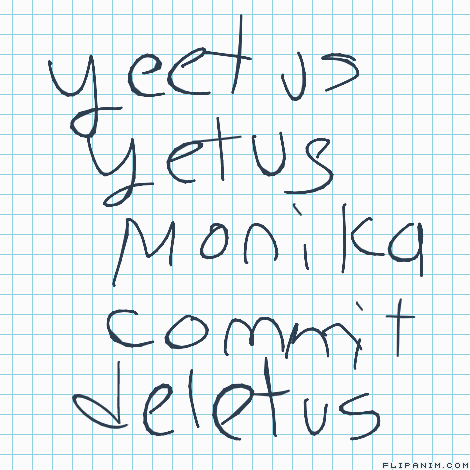 yeetus
yetus
Monika
commit
deletus
FLIPANIM.COM